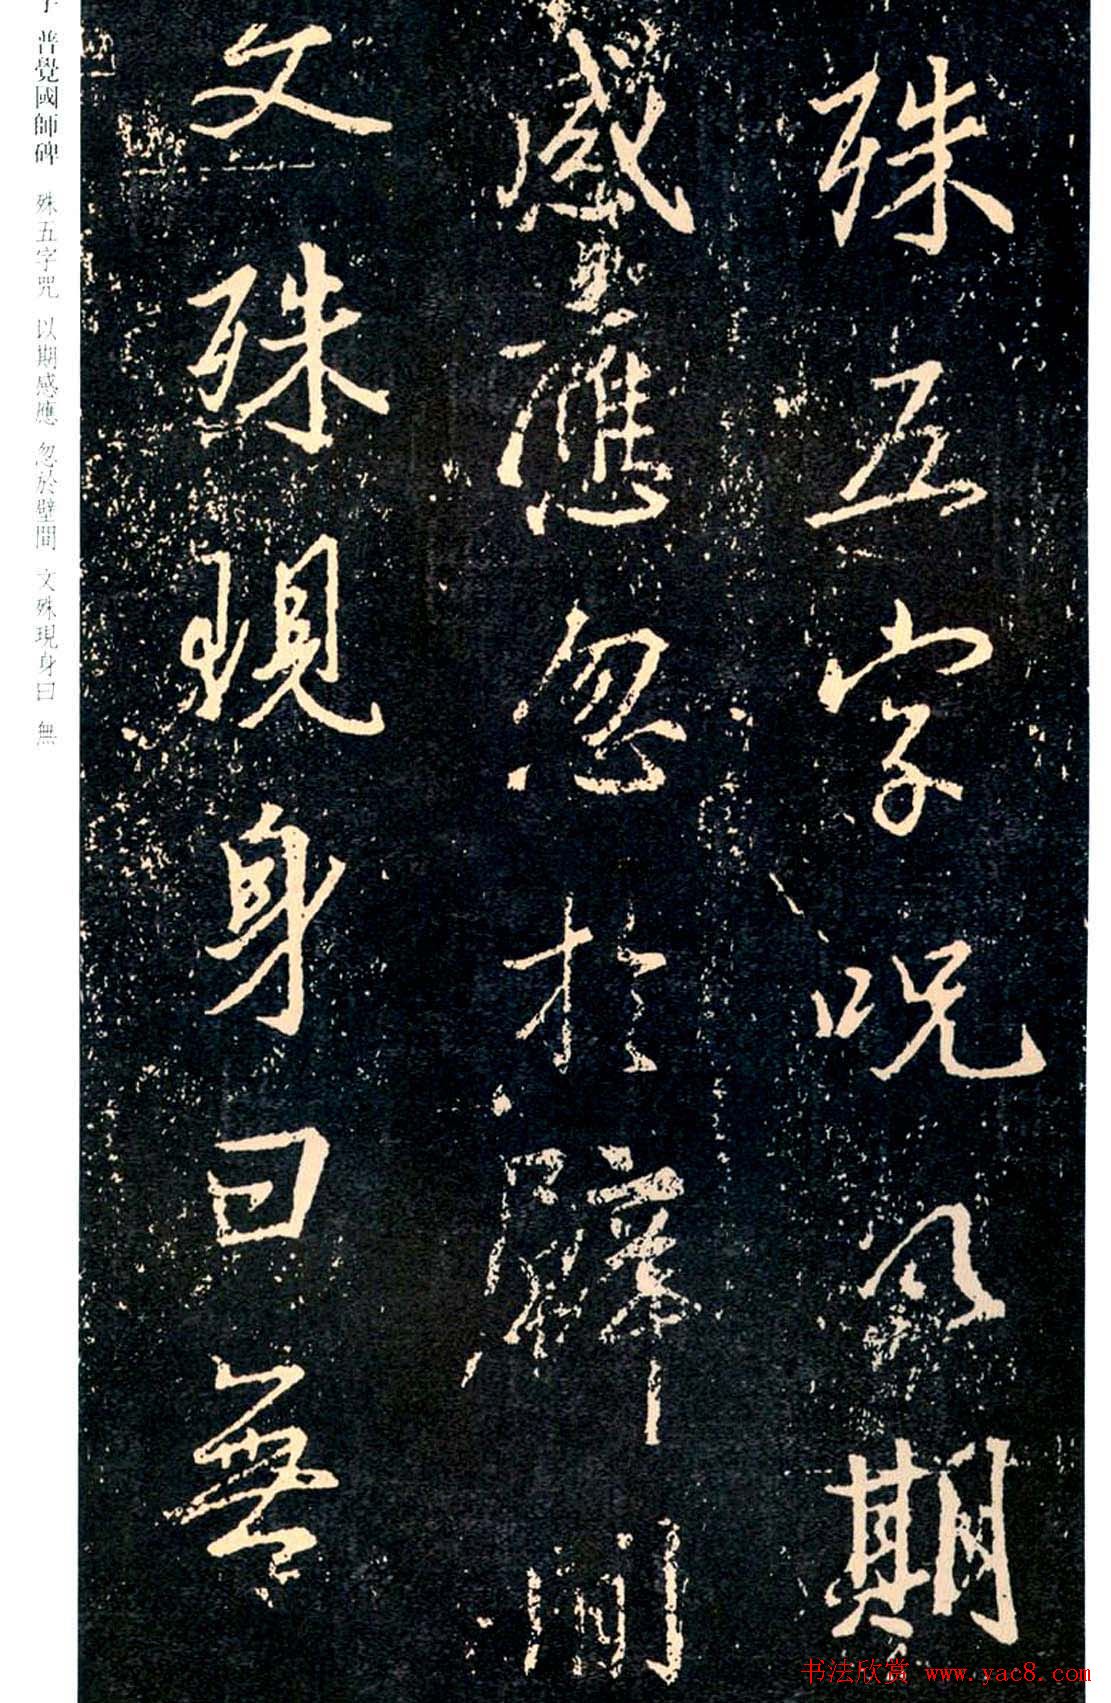 殊五字呪以期
感應忽於壁間
文殊現身曰無
普覺國師碑 殊五字咒 以期感應 忽於壁間 文殊現身曰 無
书法欣赏 www.yac8.com